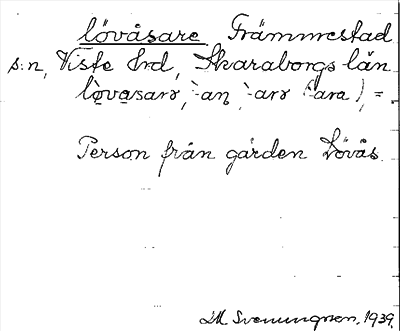 lövåsare Främmestad
s:n, Viste hrd, Skaraborgs län
lovasarə, -an -arə (-ara) =
Person från gården Lövås.
I.M. Svenungsson. 1939.